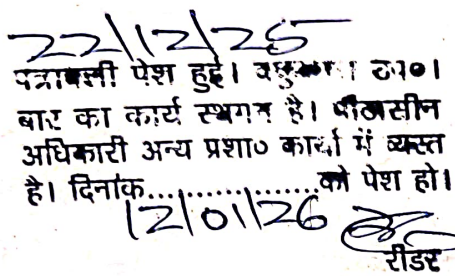 22/12/25
पत्रावली पेश हुई। व०।
बार का कार्य स्थगन है। पीठासीन
अधिकारी अन्य प्रशा० कार्यो में व्यस्त
है। दिनांक..................को पेश हो।
12/01/26
रीडर